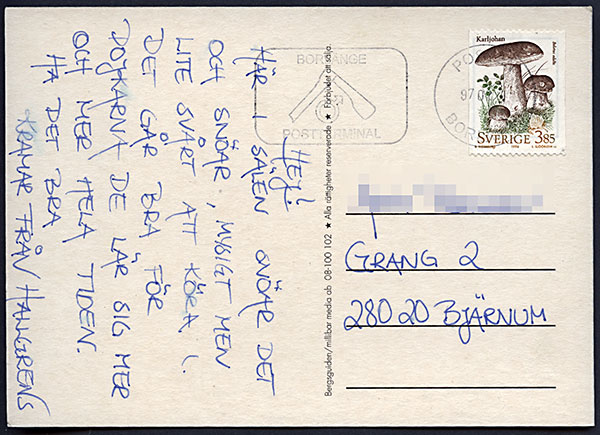 HEJ!
HÄR I SÄLEN SNÖAR DET
OCH SNÖAR, MYSIGT MEN
LITE SVÅRT ATT KÖRA (.
DET GÅR BRA FÖR
POJKARNA DE LÄR SIG MER
OCH MER HELA TIDEN.
HA DET BRA
KRAMAR FRÅN HALLGRENS
Bergsguiden/millibar media ab 08-100 102 ★ Alla rättigheter reserverade ★ Förbjudet att sälja.
BORLÄNGE
POSTTERMINAL
Karljohan
Boletus edulis
SVERIGE 3.85
1996
GRANG 2
280 20 BJÄRNUM